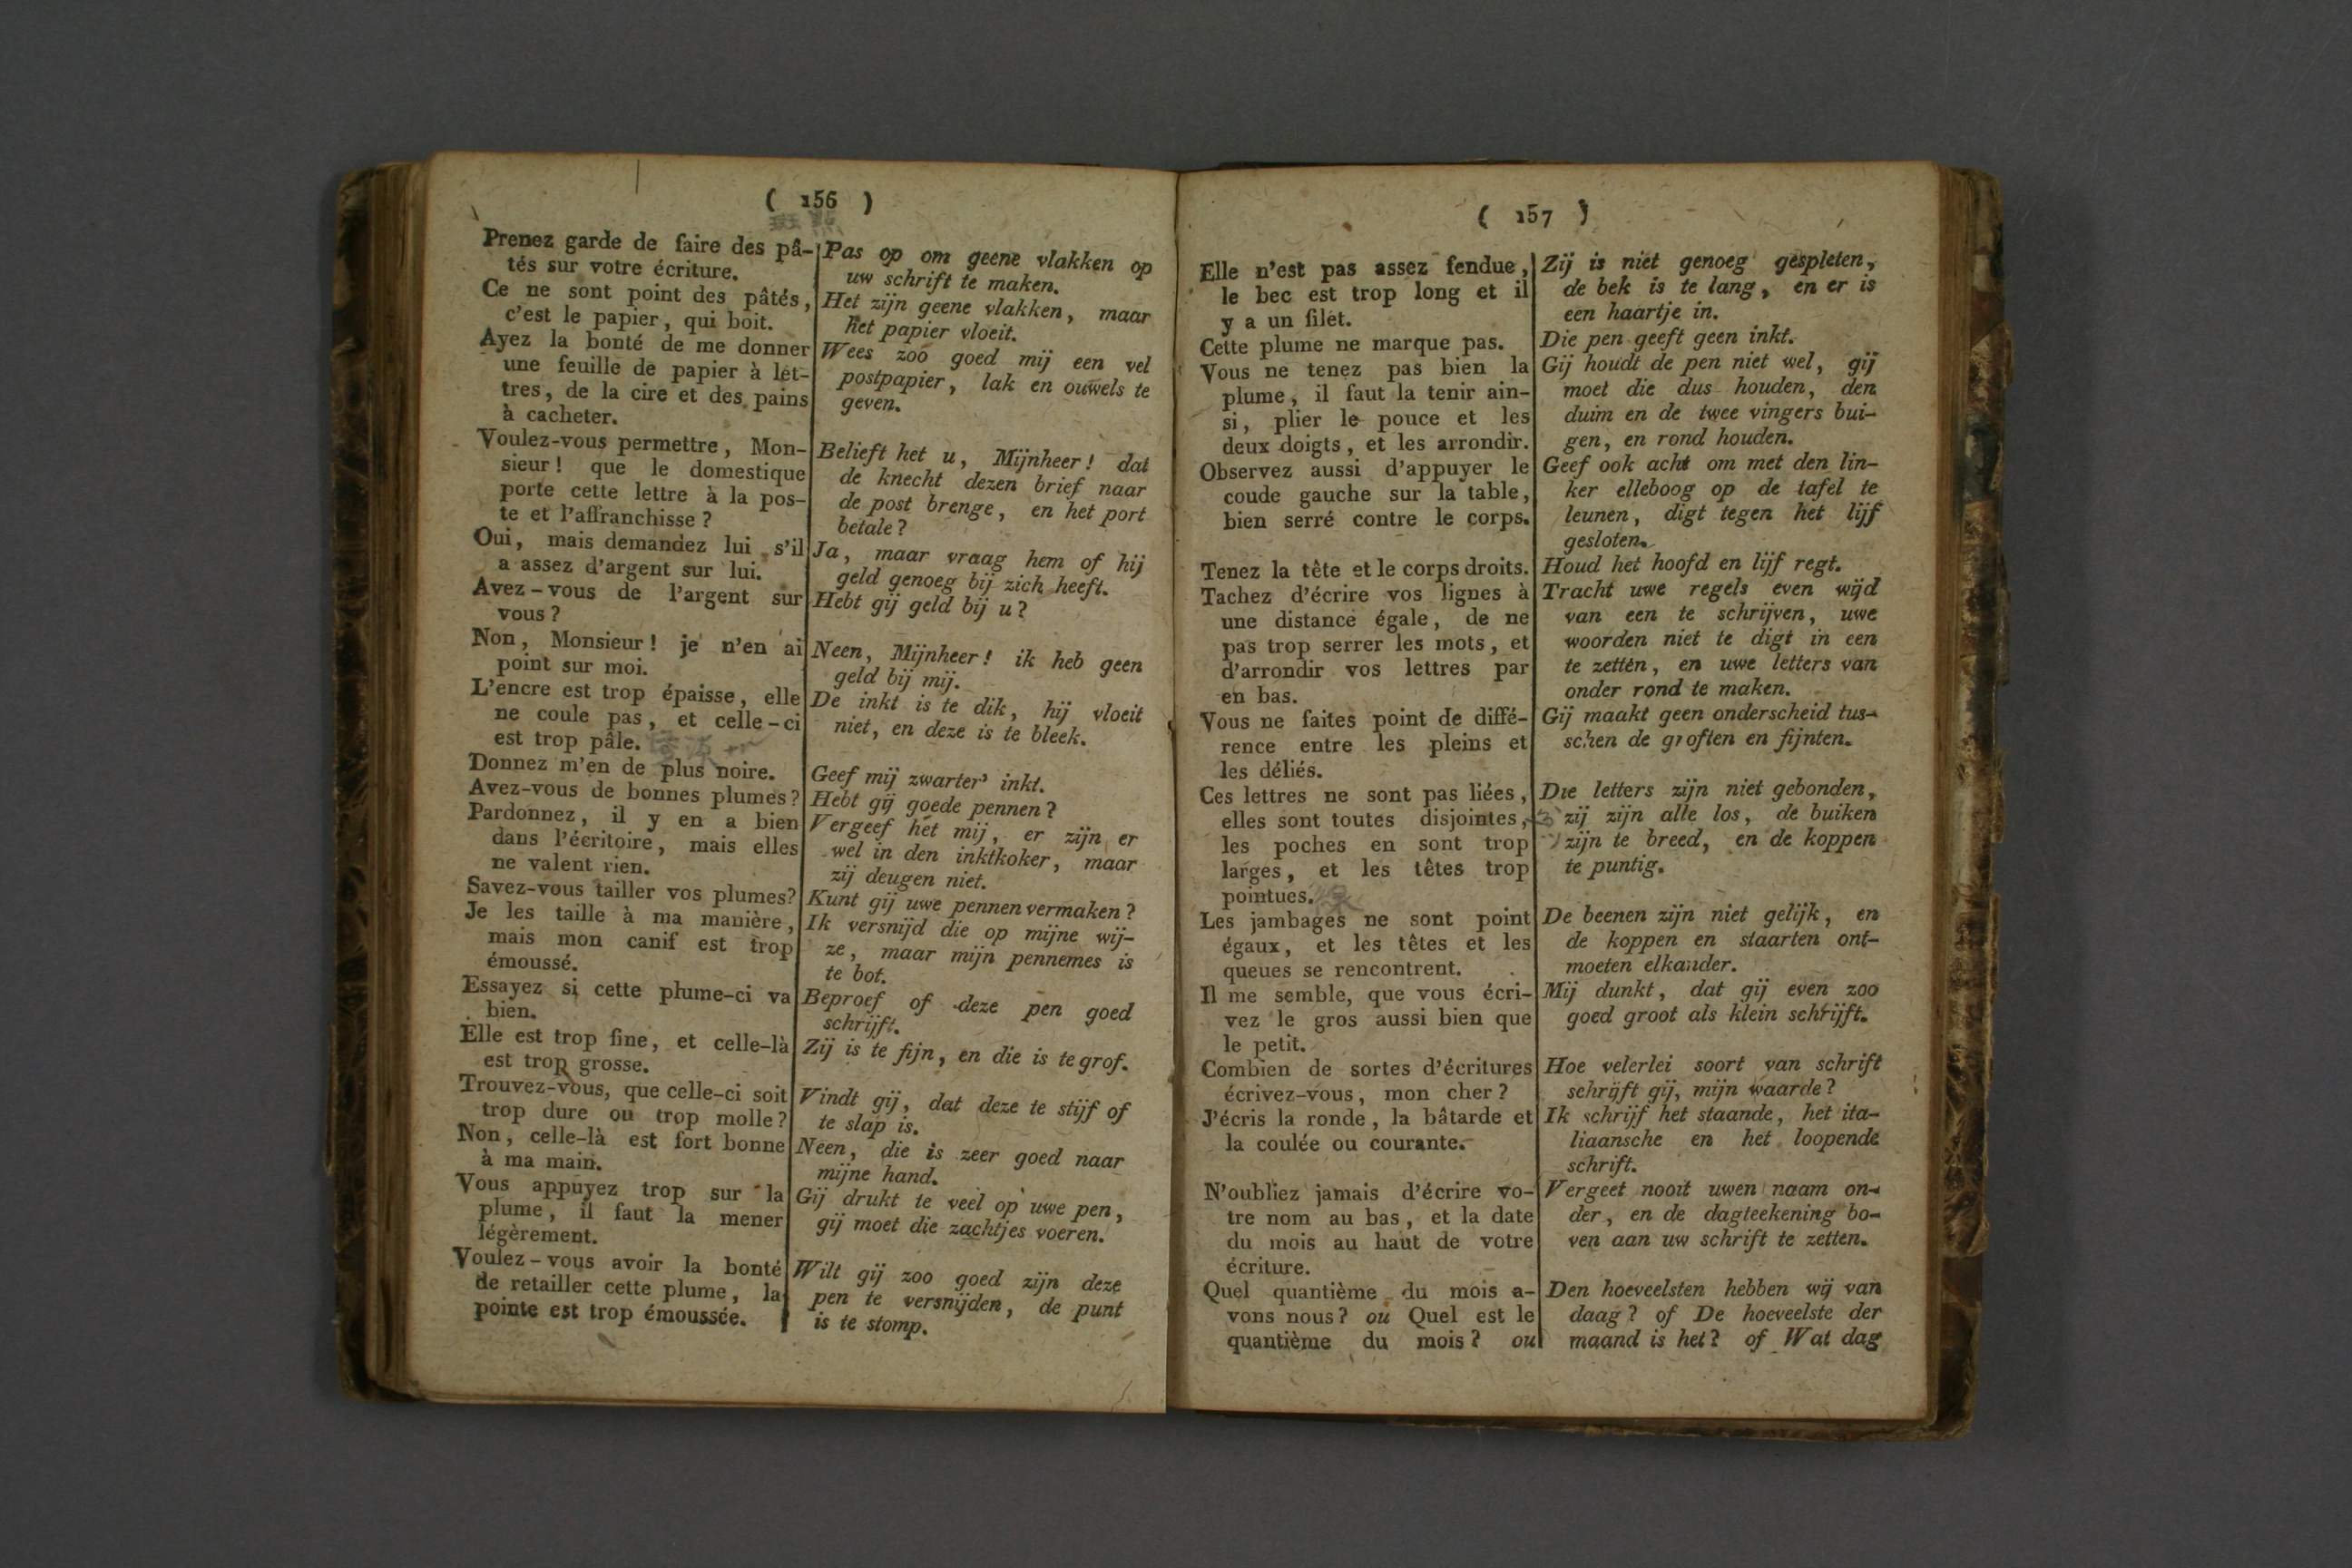 ( 156 )
Prenez garde de faire des pâ-
tés sur votre écriture.
Ce ne sont point des pâtés,
c'est le papier, qui boit.
Ayez la bonté de me donner
une feuille de papier à let-
tres, de la cire et des pains
à cacheter.
Voulez-vous permettre, Mon-
sieur! que le domestique
porte cette lettre à la pos-
te et l'affranchisse?
Oui, mais demandez lui s'il
a assez d'argent sur lui.
Avez-vous de l'argent sur
vous?
Non, Monsieur! je n'en ai
point sur moi.
L'encre est trop épaisse, elle
ne coule pas, et celle-ci
est trop pâle.
Donnez m'en de plus noire.
Avez-vous de bonnes plumes?
Pardonnez, il y en a bien
dans l'écritoire, mais elles
ne valent rien.
Savez-vous tailler vos plumes?
Je les taille à ma manière,
mais mon canif est trop
émoussé.
Essayez si cette plume-ci va
bien.
Elle est trop fine, et celle-là
est trop grosse.
Trouvez-vous, que celle-ci soit
trop dure ou trop molle?
Non, celle-là est fort bonne
à ma main.
Vous appuyez trop sur la
plume, il faut la mener
légèrement.
Voulez-vous avoir la bonté
de retailler cette plume, la
pointe est trop émoussée.
Pas op om geene vlakken op
uw schrift te maken.
Het zijn geene vlakken, maar
het papier vloeit.
Wees zoo goed mij een vel
postpapier, lak en ouwels te
geven.
Belieft het u, Mijnheer! dat
de knecht dezen brief naar
de post brenge, en het port
betale?
Ja, maar vraag hem of hij
geld genoeg bij zich heeft.
Hebt gij geld bij u?
Neen, Mijnheer! ik heb geen
geld bij mij.
De inkt is te dik, hij vloeit
niet, en deze is te bleek.
Geef mij zwarter inkt.
Hebt gij goede pennen?
Vergeef het mij, er zijn er
wel in den inktkoker, maar
zij deugen niet.
Kunt gij uwe pennen vermaken?
Ik versnijd die op mijne wij-
ze, maar mijn pennemes is
te bot.
Beproef of deze pen goed
schrijft.
Zij is te fijn, en die is te grof.
Vindt gij, dat deze te stijf of
te slap is.
Neen, die is zeer goed naar
mijne hand.
Gij drukt te veel op uwe pen,
gij moet die zachtjes voeren.
Wilt gij zoo goed zijn deze
pen te versnijden, de punt
is te stomp.
( 157 )
Elle n'est pas assez fendue,
le bec est trop long et il
y a un filet.
Cette plume ne marque pas.
Vous ne tenez pas bien la
plume, il faut la tenir ain-
si, plier le pouce et les
deux doigts, et les arrondir.
Observez aussi d'appuyer le
coude gauche sur la table,
bien serré contre le corps.
Tenez la tête et le corps droits.
Tachez d'écrire vos lignes à
une distance égale, de ne
pas trop serrer les mots, et
d'arrondir vos lettres par
en bas.
Vous ne faites point de diffé-
rence entre les pleins et
les déliés.
Ces lettres ne sont pas liées,
elles sont toutes disjointes,
les poches en sont trop
larges, et les têtes trop
pointues.
Les jambages ne sont point
égaux, et les têtes et les
queues se rencontrent.
Il me semble, que vous écri-
vez le gros aussi bien que
le petit.
Combien de sortes d'écritures
écrivez-vous, mon cher?
J'écris la ronde, la bâtarde et
la coulée ou courante.
N'oubliez jamais d'écrire vo-
tre nom au bas, et la date
du mois au haut de votre
écriture.
Quel quantième du mois a-
vons nous? ou Quel est le
quantième du mois? ou
Zij is niet genoeg gespleten,
de bek is te lang, en er is
een haartje in.
Die pen geeft geen inkt.
Gij houdt de pen niet wel, gij
moet die dus houden, den
duim en de twee vingers bui-
gen, en rond houden.
Geef ook acht om met den lin-
ker elleboog op de tafel te
leunen, digt tegen het lijf
gesloten.
Houd het hoofd en lijf regt.
Tracht uwe regels even wijd
van een te schrijven, uwe
woorden niet te digt in een
te zetten, en uwe letters van
onder rond te maken.
Gij maakt geen onderscheid tus-
schen de groften en fijnten.
Die letters zijn niet gebonden,
zij zijn alle los, de buiken
zijn te breed, en de koppen
te puntig.
De beenen zijn niet gelijk, en
de koppen en staarten ont-
moeten elkander.
Mij dunkt, dat gij even zoo
goed groot als klein schrijft.
Hoe velerlei soort van schrift
schrijft gij, mijn waarde?
Ik schrijf het staande, het ita-
liaansche en het loopende
schrift.
Vergeet nooit uwen naam on-
der, en de dagteekening bo-
ven aan uw schrift te zetten.
Den hoeveelsten hebben wij van
daag? of De hoeveelste der
maand is het? of Wat dag